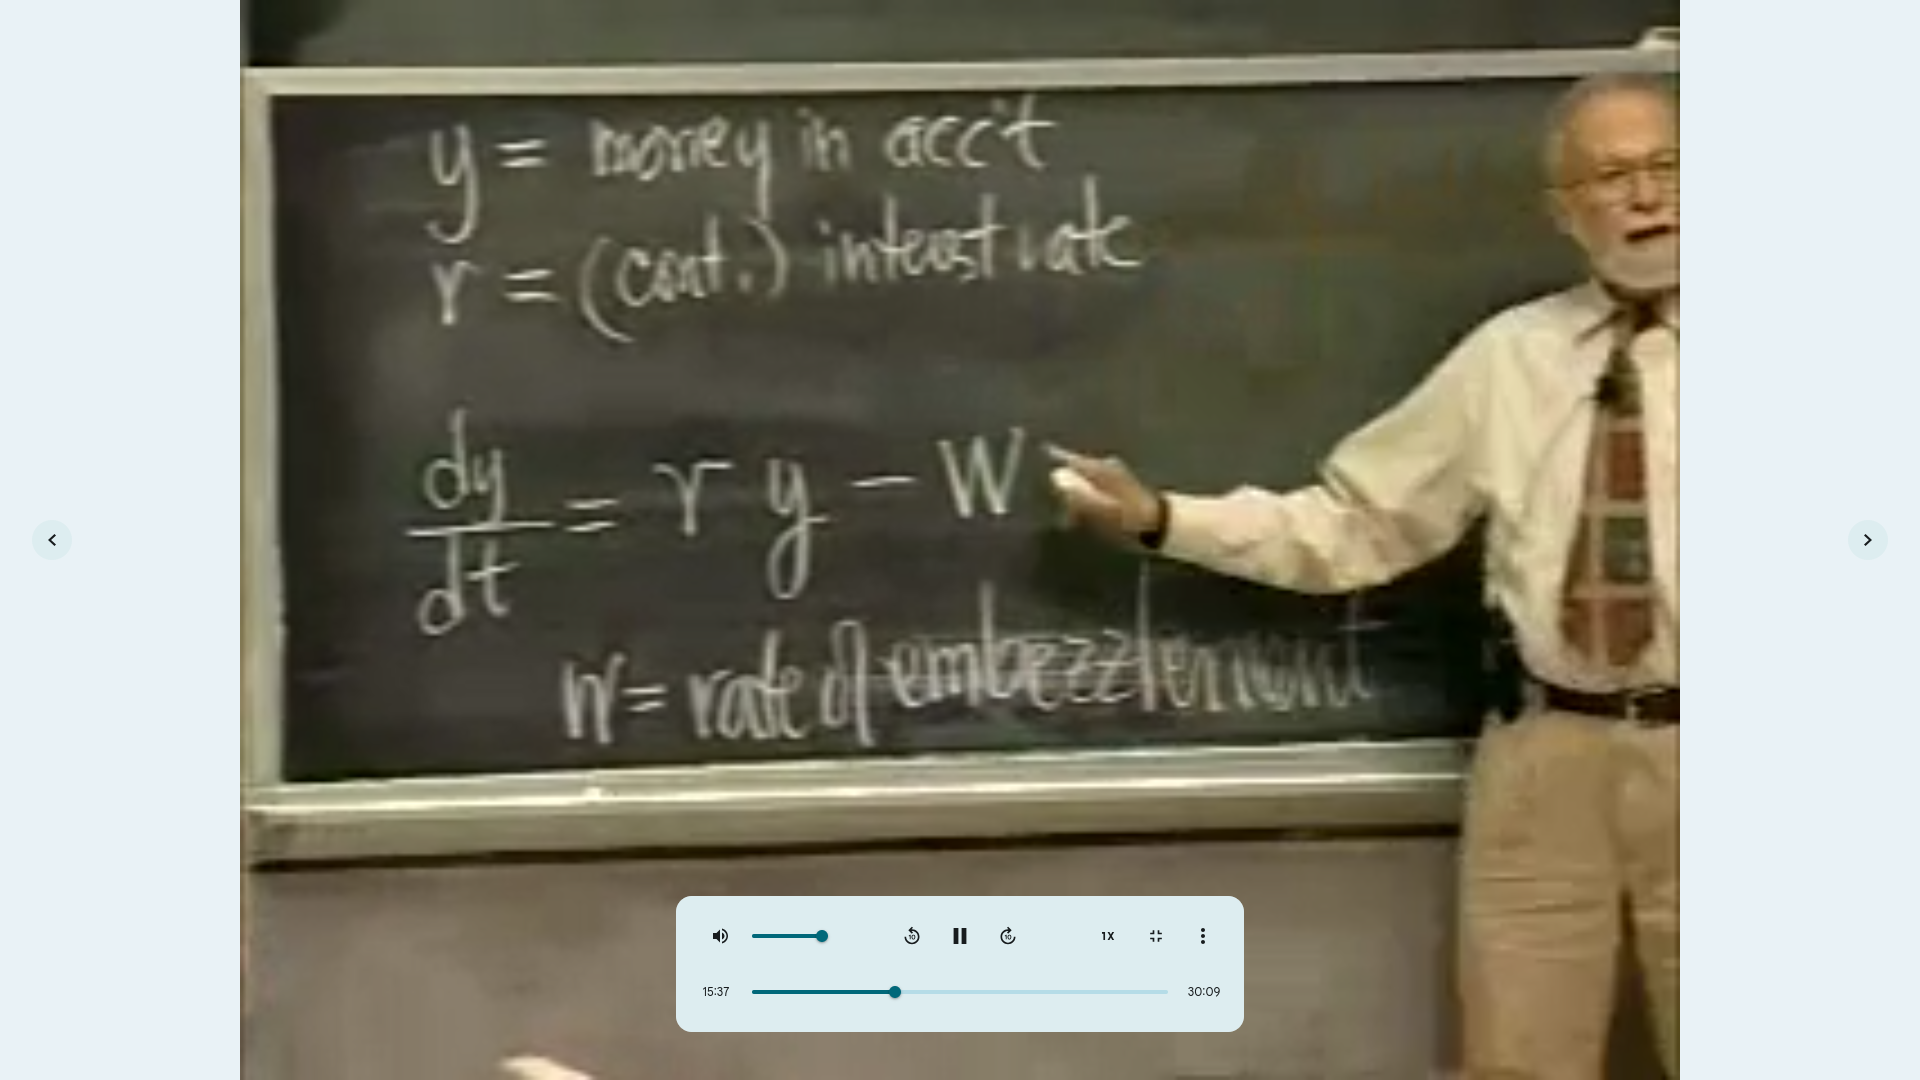 y = money in acc't
r = (cont.) interest rate
dy/dt = r y - W
W = rate of embezzlement
1X
15:37
30:09